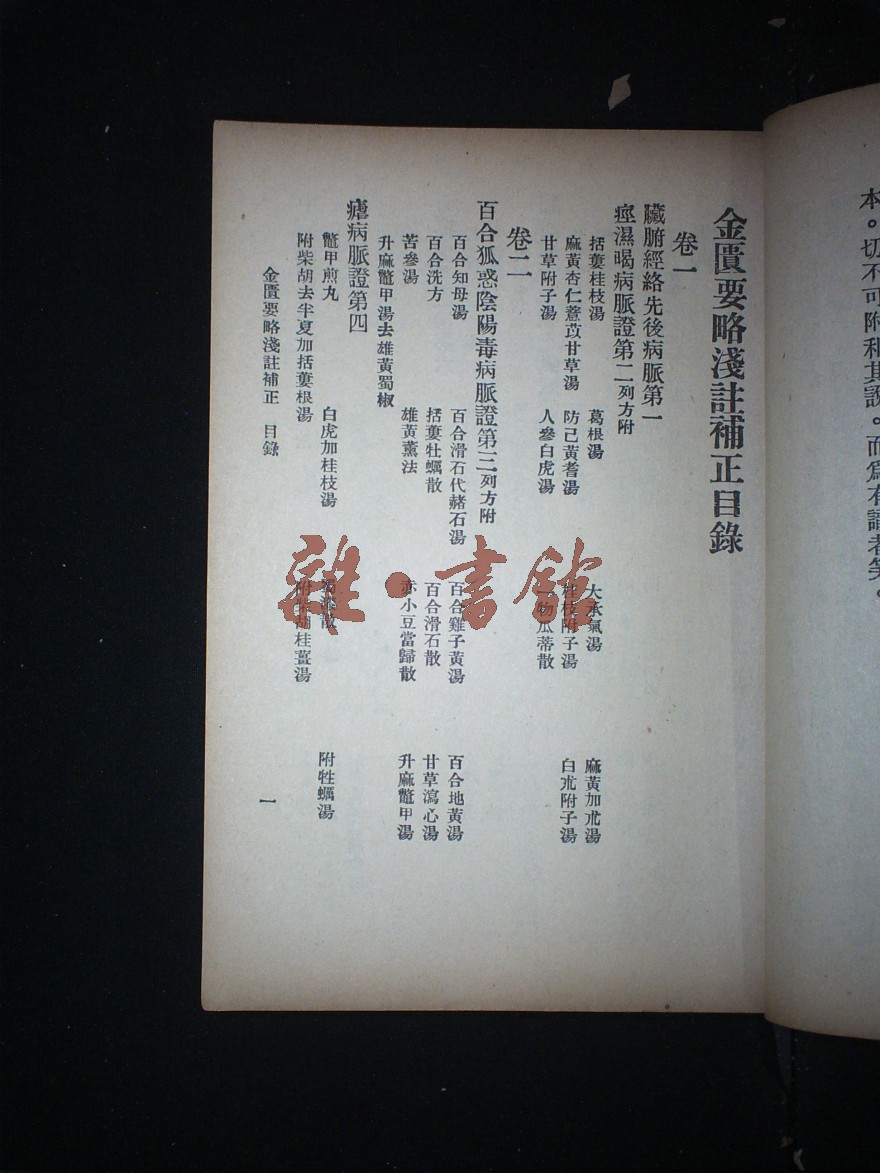 本。切不可附和其說。而爲有識者笑。
金匱要略淺註補正目錄
卷一
臟腑經絡先後病脈第一
痙濕暍病脈證第二列方附
括蔞桂枝湯 葛根湯 大承氣湯 麻黃加朮湯
麻黃杏仁薏苡甘草湯 防己黃耆湯 桂枝附子湯 白朮附子湯
甘草附子湯 人參白虎湯 一物瓜蒂散
卷二
百合狐惑陰陽毒病脈證第三列方附
百合知母湯 百合滑石代赭石湯 百合雞子黃湯 百合地黃湯
百合洗方 括蔞牡蠣散 百合滑石散 甘草瀉心湯
苦參湯 雄黃薰法 赤小豆當歸散 升麻鼈甲湯
升麻鼈甲湯去雄黃蜀椒
瘧病脈證第四
鼈甲煎丸 白虎加桂枝湯 蜀漆散 附牡蠣湯
附柴胡去半夏加括蔞根湯 附柴胡桂薑湯
金匱要略淺註補正 目錄 一
雜·書館